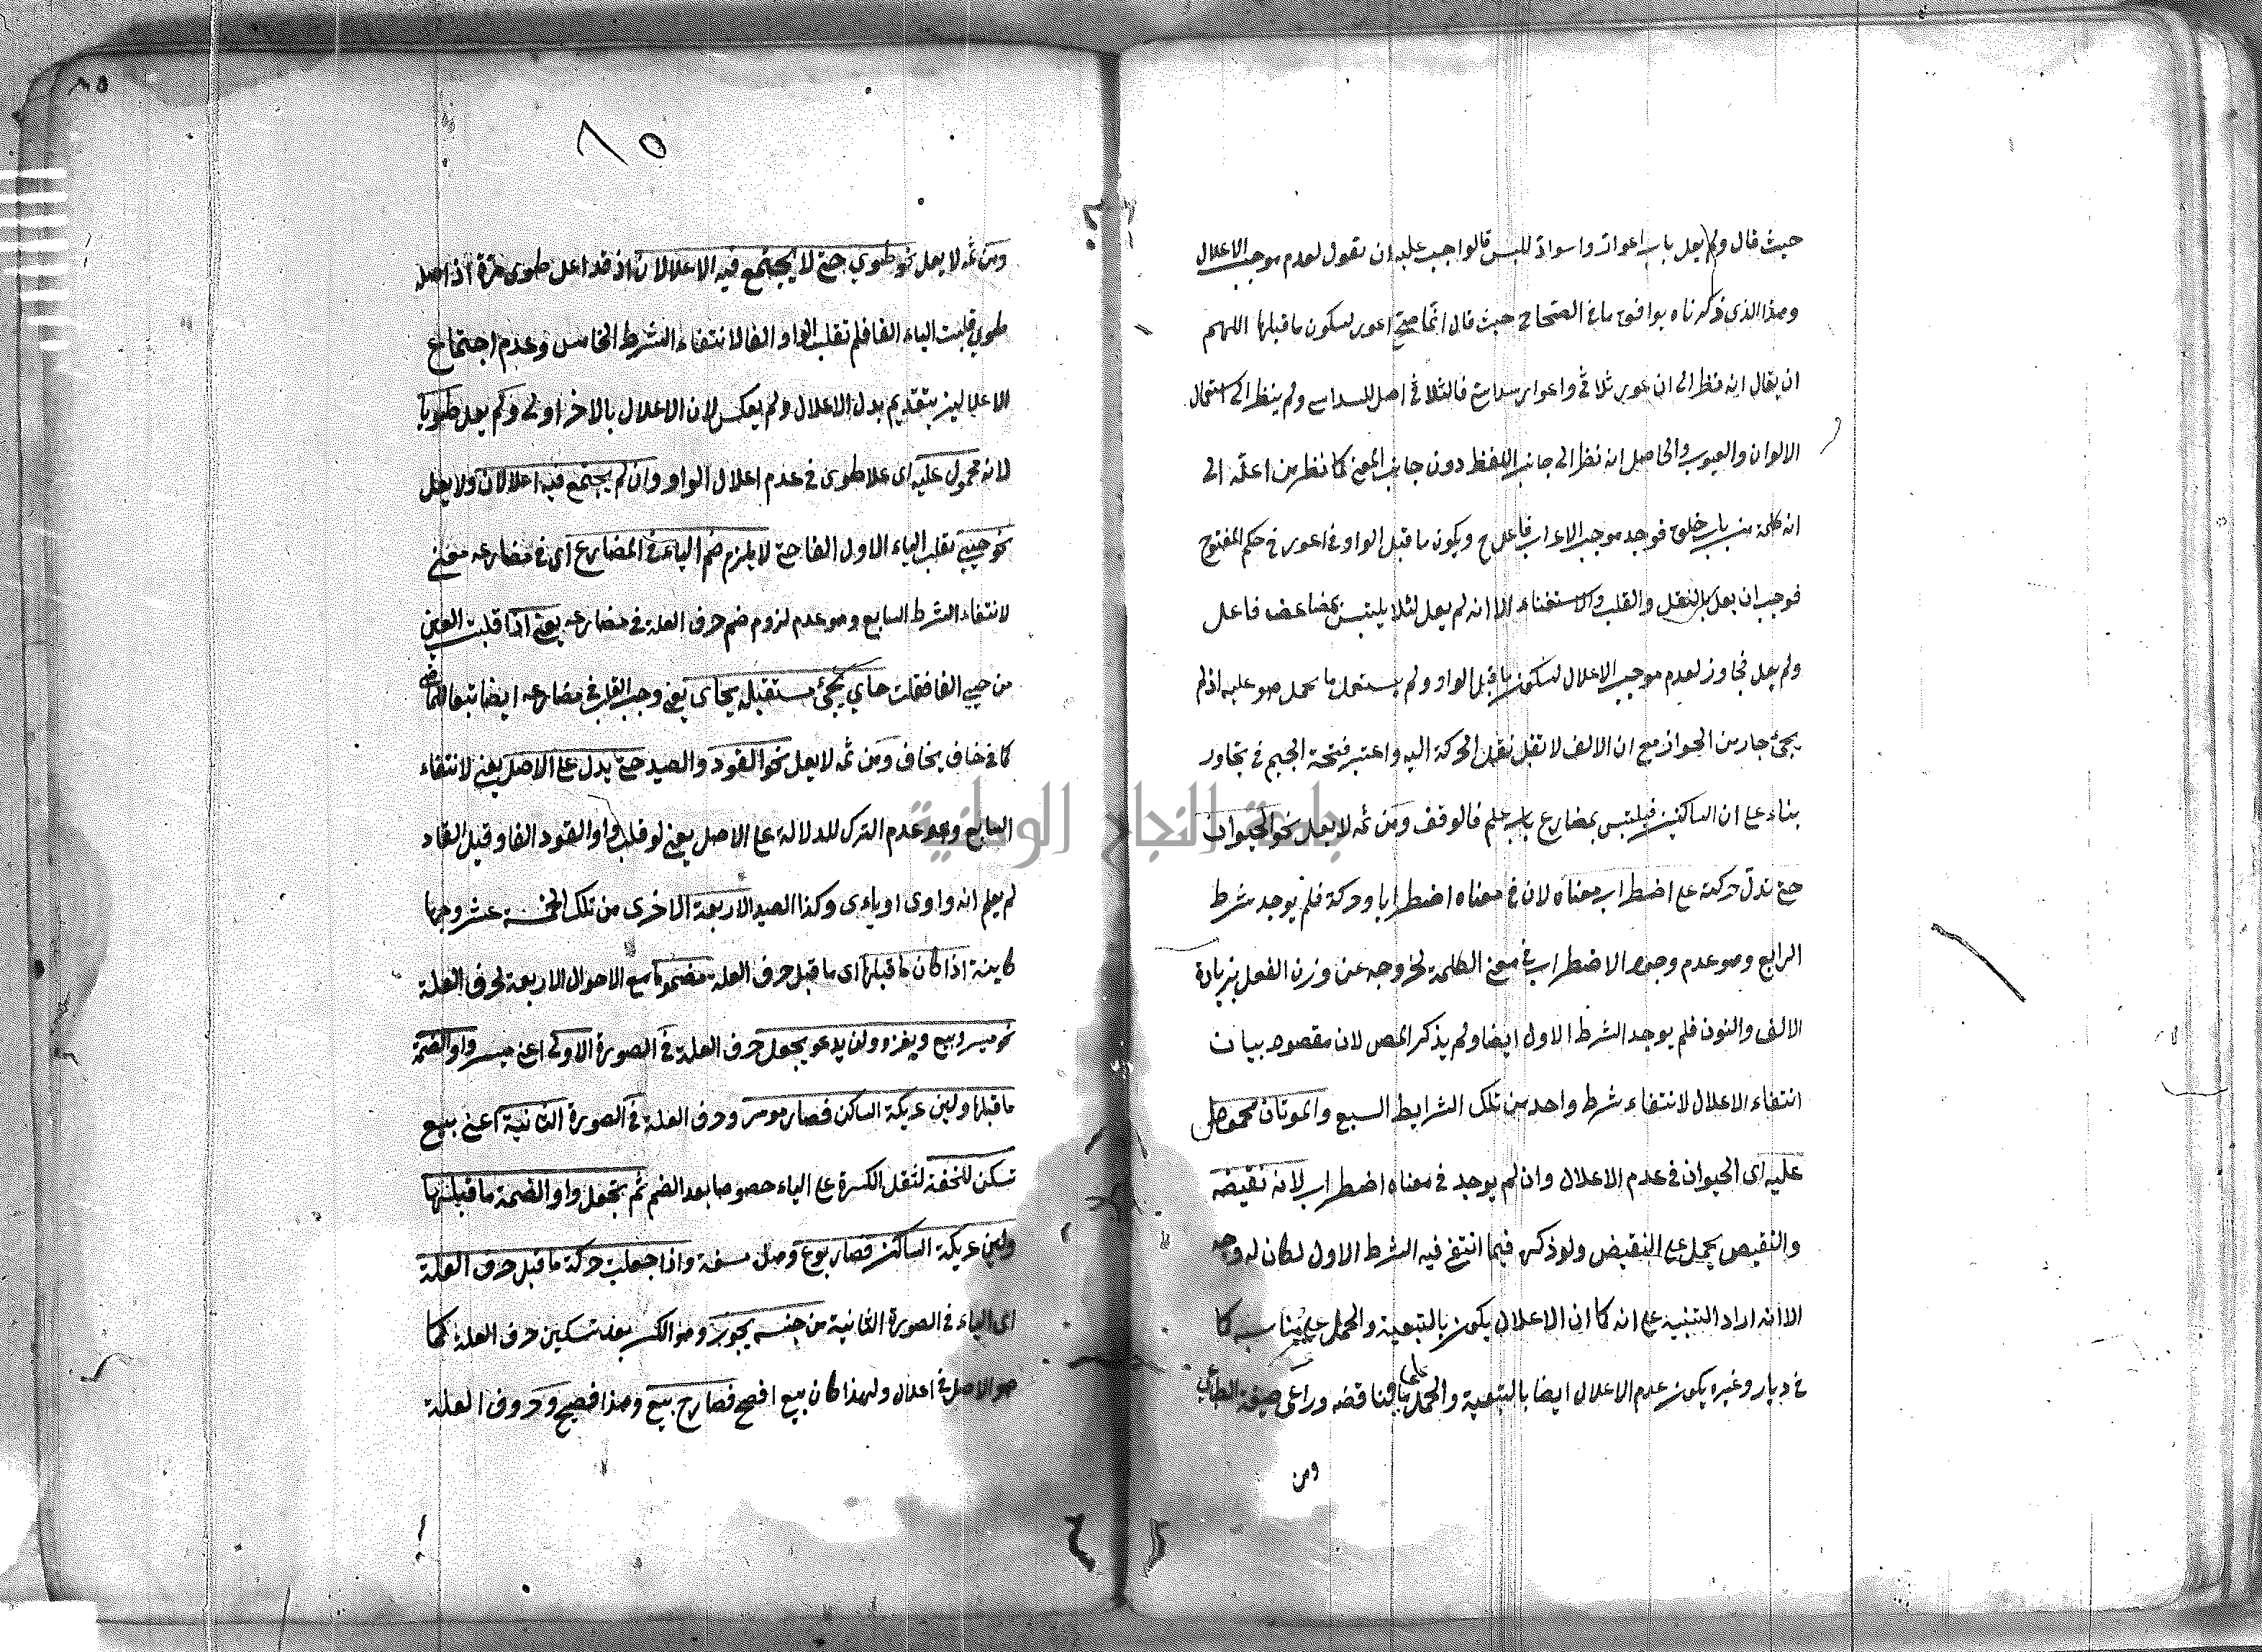 حيث قال ولم يعل باب اعوار واسواد للبس قالوا جب عليه ان نقول لعدم موجب الاعلال
وهذا الذى ذكرناه يوافق ما فى الصحاح حيث قال انما صح اعور لسكون ما قبلها اللهم
ان يقال انه نظر الى ان عور ثلاثى واعوار سداسى فالثلاثى اصل للسداسى ولم ينظر الى استعمال
الالوان والعيوب والحاصل انه نظر الى جانب اللفظ دون جانب المعنى كما نظر من اعله الى
انه كلمة من باب فوجد موجب الاعراب ويكون ما قبل الواو فى اعور فى حكم المفتوح
فوجب ان يعل بالنقل والقلب والاستغناء الا انه لم يعل لئلا يلتبس بمضاعف فاعل
ولم يعل تجاوز لعدم موجب الاعلال لسكون ما قبل الواو ولم يستعمل ما يحمل هو عليه اذ لم
يجئ جار من الجواز مع ان الالف لا تقبل نقل الحركة اليه واعتبر فتحة الجيم فى تجاور
بناء على ان الساكنين فيلتبس بمضارع باب علم فالوقف ومن ثمه لا يعل نحو الحيوان
حتى تدل حركته على اضطراب معناه لان فى معناه اضطرابا وحركة فلم يوجد شرط
الرابع وهو عدم وجود الاضطراب فى معنى الكلمة لخروجه عن وزن الفعل بزيادة
الالف والنون فلم يوجد الشرط الاول ايضا ولم يذكر المص لان مقصوده بيان
انتفاء الاعلال لانتفاء شرط واحد من تلك الشرايط السبع والموتان محمول
عليه اى الحيوان فى عدم الاعلال وان لم يوجد فى معناه اضطراب لانه نقيضه
والنقيض يحمل على النقيض ولو ذكره فيما انتفى فيه الشرط الاول لكان له وجه
الا انه اراد التنبيه على انه كما ان الاعلال يكون بالتبعية والحمل على مناسبه كما
فى ديار وغيره يكون عدم الاعلال ايضا بالتبعية والحمل على مناقضه وراعى صيغة
ومن
٨٥
٨٥
ومن ثمه لا يعل نحو طوى حتى لا يجتمع فيه الاعلالان اذ قد اعل طوى مرة اذ اصله
طوى قلبت الياء الفا فلم تقلب الواو الفا لانتفاء الشرط الخامس وعدم اجتماع
الاعلالين بتقديم بدل الاعلال ولم يعكس لان الاعلال بالاخر اولى ولم يعل طويا
لانه محمول عليه اى على طوى فى عدم اعلال الواو وان لم يجتمع فيه اعلالان ولا يعل
نحو حيى تقلب الياء الاول الفا حتى لا يلزم ضم الياء فى المضارع اى فى مضارعه معنى
لانتفاء الشرط السابع وهو عدم لزوم ضم حرف العلة فى مضارعه يعنى اذا قلبت العين
من حيى الفا فقلت حاى يجئ مستقبله يحاى يعنى وجب القلب فى مضارعه ايضا تبعا للماضى
كما فى خاف يخاف ومن ثمه لا يعل نحو القود والصيد حتى يدل على الاصل يعنى لانتفاء
السابع وهو عدم الترك للدلالة على الاصل يعنى لو قلب واو القود الفا وقيل القاد
لم يعلم انه واوى او ياءى وكذا الصيد الاربعة الاخرى من تلك الخمسة عشر وجها
كاينة اذا كان ما قبلها اى ما قبل حرف العلة مضموما مع الاحوال الاربعة لحرف العلة
نحو ميسر وبيع ويغزو ولن يدعو يجعل حرف العلة فى الصورة الاولى اعنى ميسر واوا لضمة
ما قبلها ولين عريكة الساكن فصار موسر وحرف العلة فى الصورة الثانية اعنى بيع
تسكن للخفة لثقل الكسرة على الياء خصوصا بعد الضم ثم تجعل واوا لضمة ما قبلها
ولين عريكة الساكن فصار بوع وهل مسقة واذا جعلت حركة ما قبل حرف العلة
اى الياء فى الصورة الثانية من جنسه يجوز وهو الكسر بعد تسكين حرف العلة كما
هو الاصل فى اعلال ولهذا كان بيع افصح فصار ح بيع وهذا فصيح وحروف العلة
جامعة النجاح الوطنية